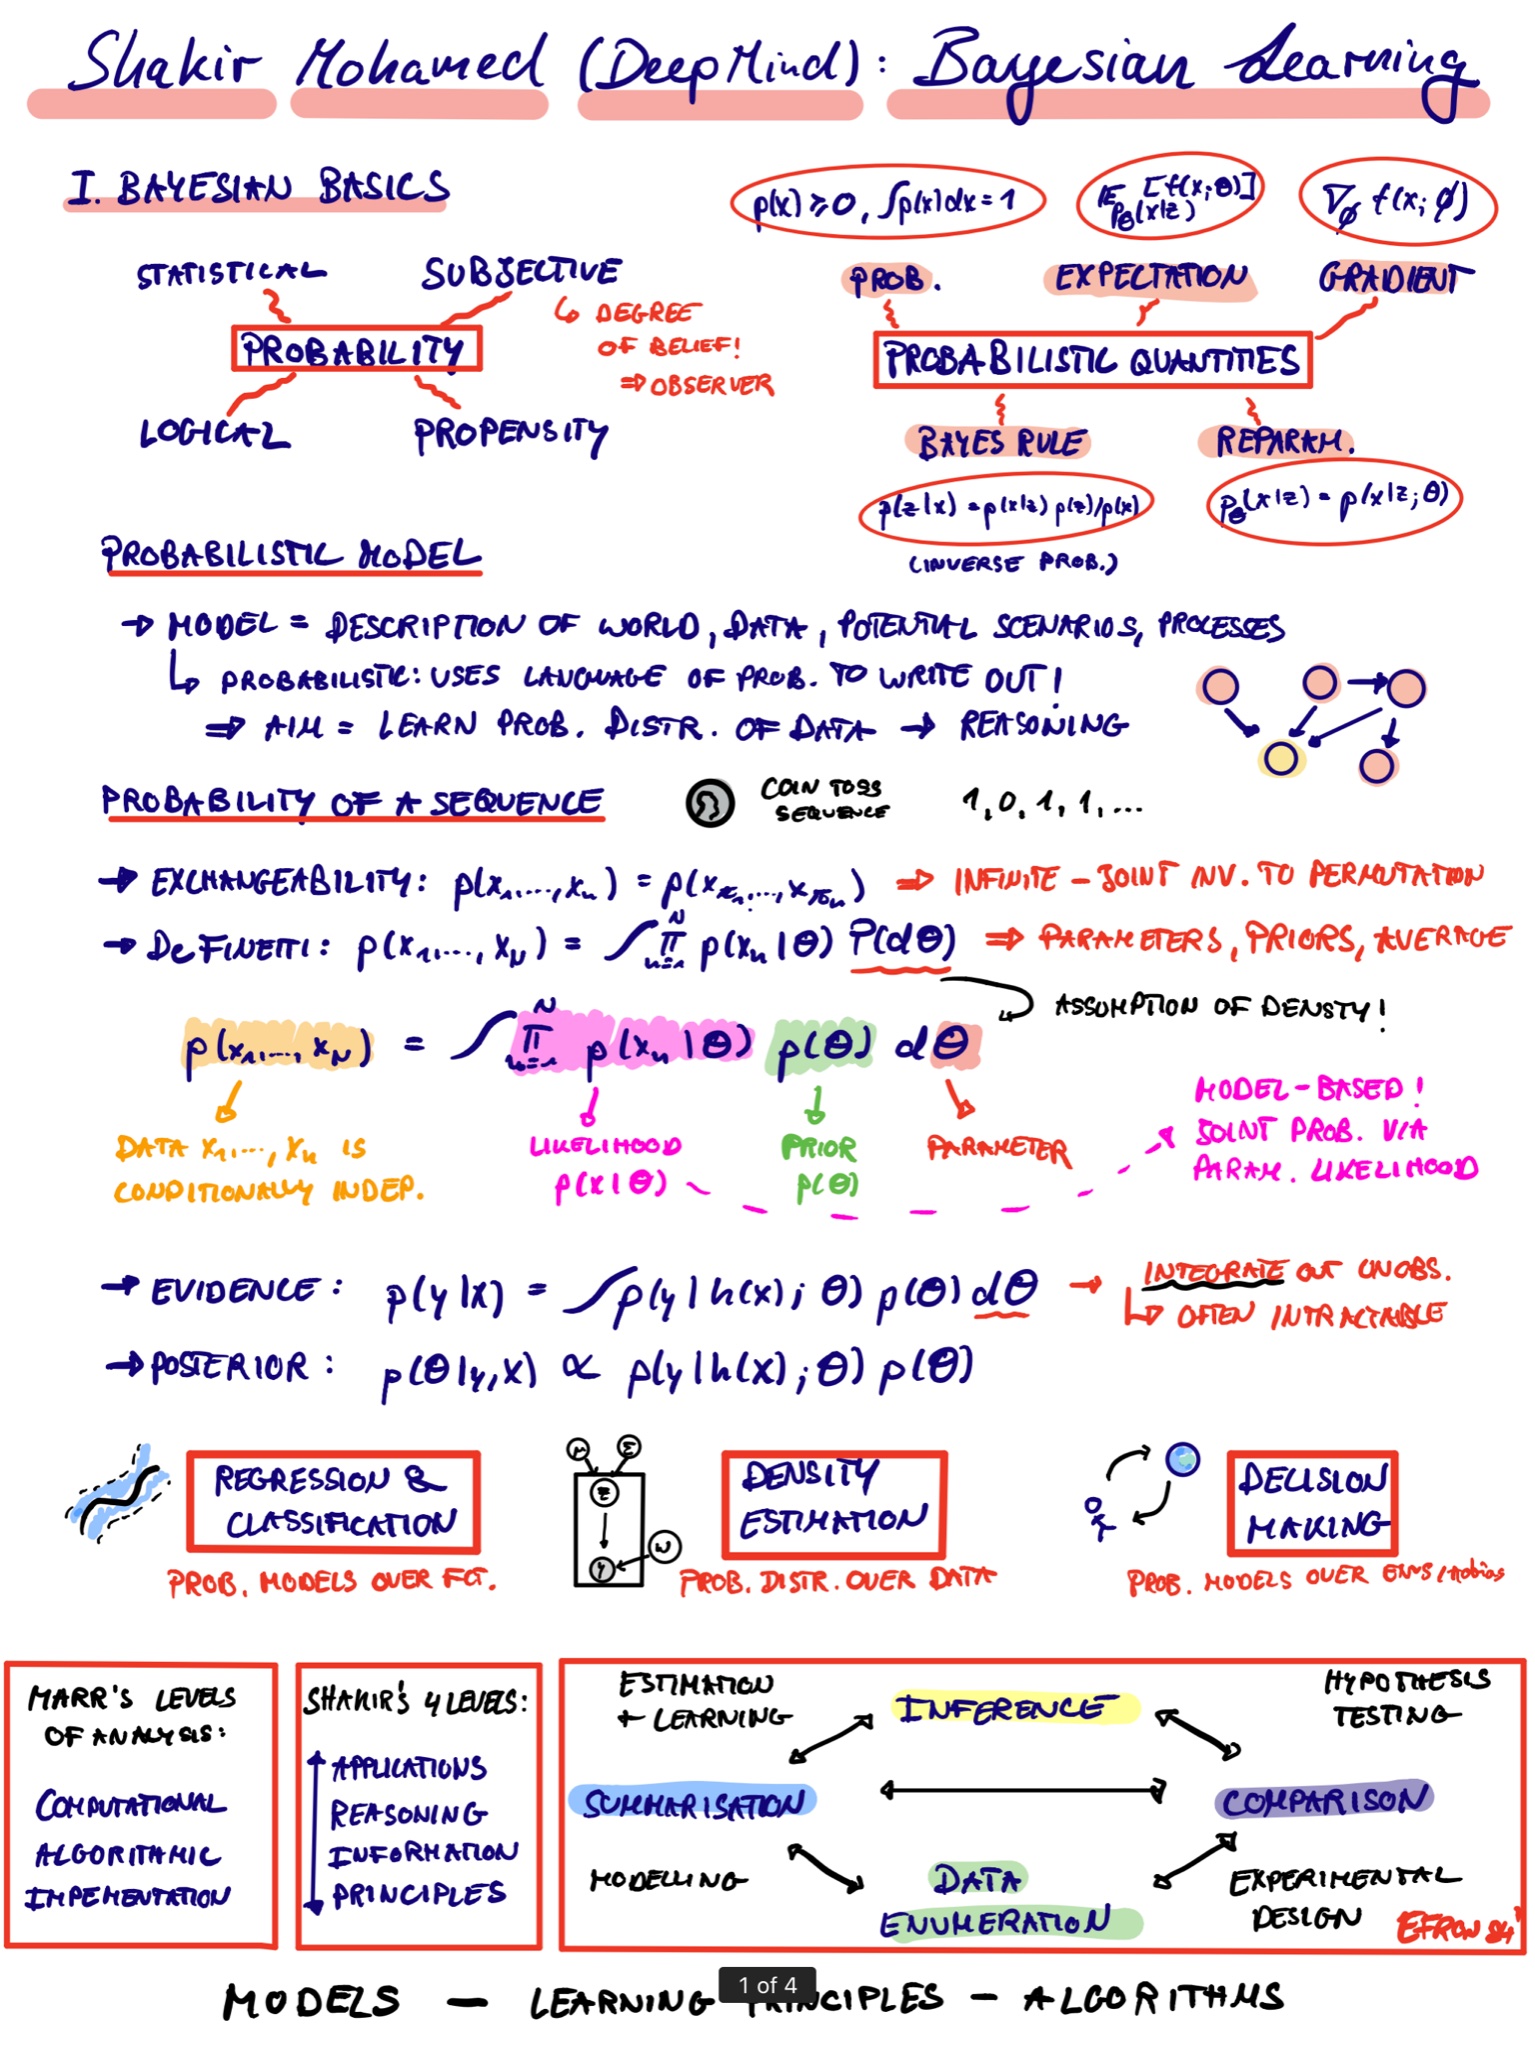 Shakir Mohamed (DeepMind): Bayesian Learning
I. BAYESIAN BASICS
STATISTICAL
SUBJECTIVE
↳ DEGREE
OF BELIEF!
⇒ OBSERVER
PROBABILITY
LOGICAL
PROPENSITY
p(x) ≥ 0, ∫p(x)dx = 1
𝔼_{pθ(x|z)} [f(x;θ)]
∇_ϕ f(x; ϕ)
PROB.
EXPECTATION
GRADIENT
PROBABILISTIC QUANTITIES
BAYES RULE
REPARAM.
p(z|x) = p(x|z) p(z)/p(x)
p_θ(x|z) = p(x|z; θ)
(INVERSE PROB.)
PROBABILISTIC MODEL
→ MODEL = DESCRIPTION OF WORLD, DATA, POTENTIAL SCENARIOS, PROCESSES
↳ PROBABILISTIC: USES LANGUAGE OF PROB. TO WRITE OUT!
⇒ AIM = LEARN PROB. DISTR. OF DATA → REASONING
PROBABILITY OF A SEQUENCE
COIN TOSS
SEQUENCE
1, 0, 1, 1, ...
→ EXCHANGEABILITY: p(x₁,...,xₙ) = p(x_π₁,...,x_πₙ) ⇒ INFINITE - JOINT INV. TO PERMUTATION
→ DeFINETTI: p(x₁,...,x_N) = ∫ ∏_{n=1}^N p(xₙ|θ) P(dθ) ⇒ PARAMETERS, PRIORS, AVERAGE
ASSUMPTION OF DENSTY!
p(x₁,..., x_N) = ∫ ∏_{n=1}^N p(xₙ|θ) p(θ) dθ
DATA x₁,...,xₙ IS
CONDITIONALLY INDEP.
LIKELIHOOD
p(x|θ)
PRIOR
p(θ)
PARAMETER
MODEL-BASED!
JOINT PROB. VIA
PARAM. LIKELIHOOD
→ EVIDENCE: p(y|x) = ∫p(y|h(x); θ) p(θ) dθ → INTEGRATE OUT UNOBS.
↳ OFTEN INTRACTABLE
→ POSTERIOR: p(θ|y,x) ∝ p(y|h(x);θ) p(θ)
REGRESSION &
CLASSIFICATION
PROB. MODELS OVER FCT.
μ
Σ
Z
y
W
DENSITY
ESTIMATION
PROB. DISTR. OVER DATA
DECISION
MAKING
PROB. MODELS OVER ENVS
MARR'S LEVELS
OF ANALYSIS:
COMPUTATIONAL
ALGORITHMIC
IMPEMENTATION
SHAKIR'S 4 LEVELS:
APPLICATIONS
REASONING
INFORMATION
PRINCIPLES
ESTIMATION
+ LEARNING
INFERENCE
HYPOTHESIS
TESTING
SUMMARISATION
COMPARISON
MODELLING
DATA
ENUMERATION
EXPERIMENTAL
DESIGN
EFRON 84'
1 of 4
MODELS — LEARNING PRINCIPLES — ALGORITHMS